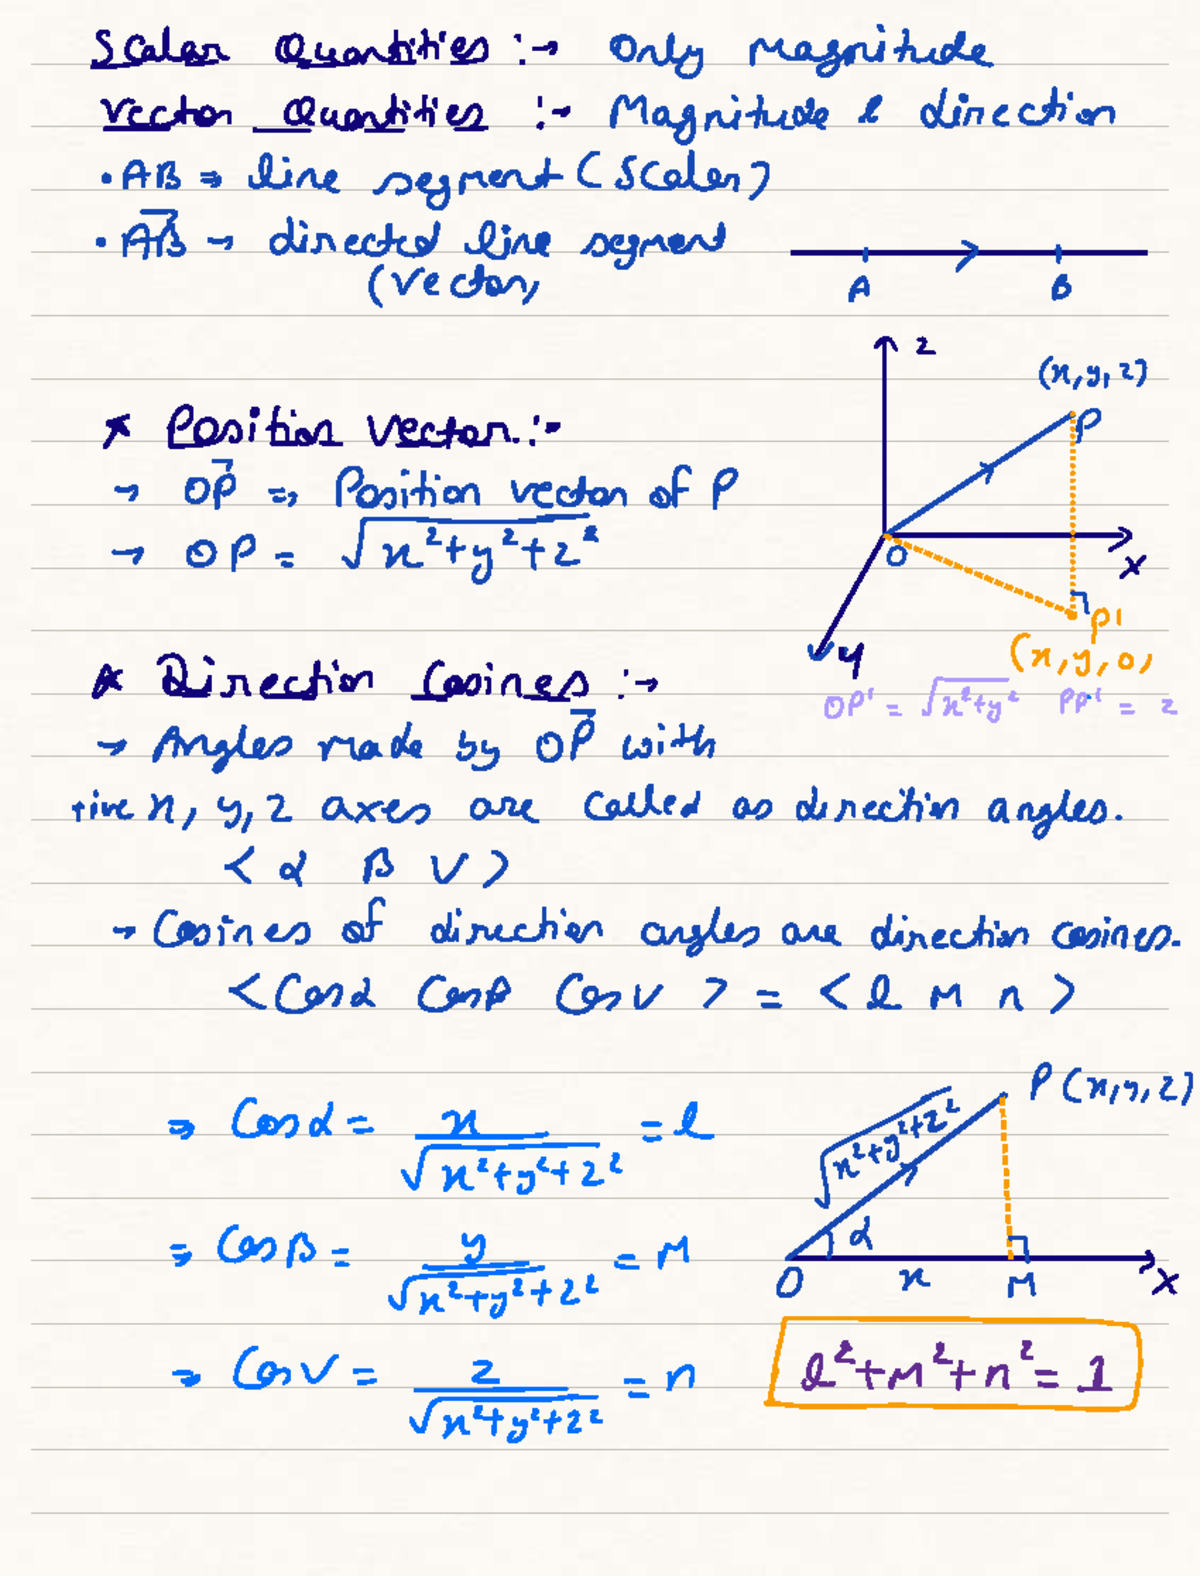 Scalar Quantities :→ Only Magnitude
Vector Quantities :→ Magnitude & direction
• AB ⇒ line segment (Scalar)
• A⃗B → directed line segment
(Vector)
A B
z
(x, y, z)
P
★ Position Vector :→
→ OP⃗ ⇒ Position vector of P
→ OP = √x²+y²+z²
O
x
P'
y
(x, y, 0)
OP' = √x²+y² PP' = z
★ Direction Cosines :→
→ Angles made by OP⃗ with
+ive x, y, z axes are called as direction angles.
< α β γ >
→ Cosines of direction angles are direction cosines.
< Cosα Cosβ Cosγ > = < l m n >
P (x, y, z)
⇒ Cosα = x / √x²+y²+z² = l
√x²+y²+z²
α
⇒ Cosβ = y / √x²+y²+z² = m
O x M x
⇒ Cosγ = z / √x²+y²+z² = n
l²+m²+n² = 1